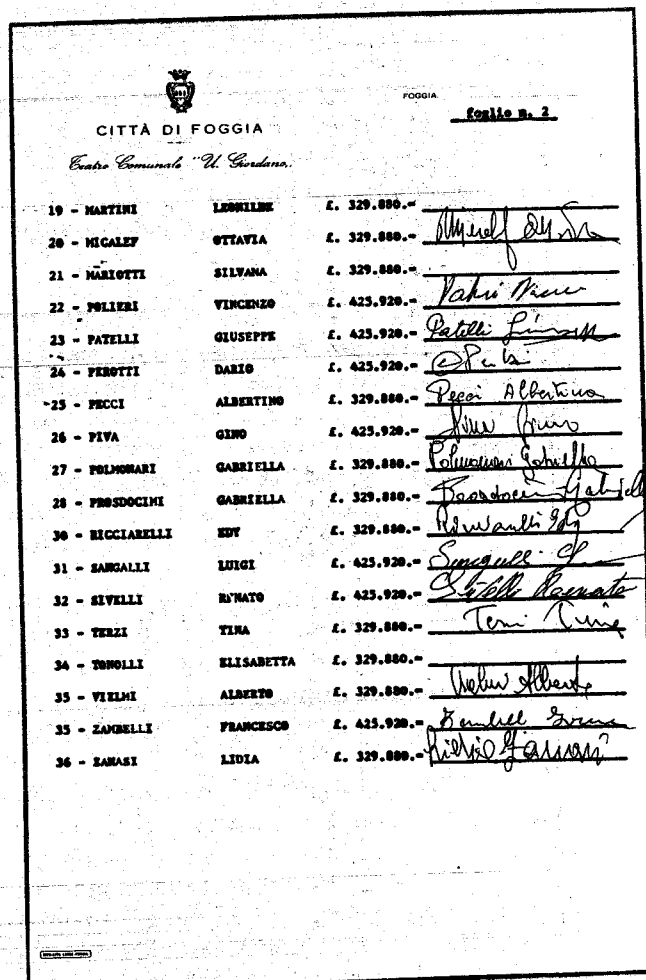 FOGGIA
foglio n. 2
CITTÀ DI FOGGIA
Teatro Comunale "U. Giordano„
19 - MARTINI LEONILDE £. 329.880.-
20 - MICALEF OTTAVIA £. 329.880.-
21 - MARIOTTI SILVANA £. 329.880.-
22 - POLIERI VINCENZO £. 425.920.-
23 - PATELLI GIUSEPPE £. 425.920.- Patelli
24 - PEROTTI DARIO £. 425.920.-
25 - PECCI ALBERTINO £. 329.880.- Pecci Albertino
26 - PIVA GINO £. 425.920.-
27 - POLMONARI GABRIELLA £. 329.880.- Polmonari Gabriella
28 - PROSDOCIMI GABRIELLA £. 329.880.-
30 - RICCIARELLI EDY £. 329.880.-
31 - SANGALLI LUIGI £. 425.920.-
32 - SIVELLI RENATO £. 425.920.- Sivelli Renato
33 - TERZI TINA £. 329.880.- Terzi Tina
34 - TONOLLI ELISABETTA £. 329.880.-
35 - VIELMI ALBERTO £. 329.880.- Alberto
35 - ZAMBELLI FRANCESCO £. 425.920.-
36 - ZANASI LIDIA £. 329.880.- Lidia Zanasi